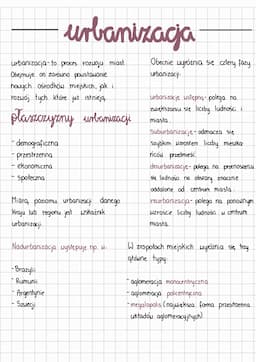 urbanizacja
urbanizacja - to proces rozwoju miast.
Obejmuje on zarówno powstawanie
nowych ośrodków miejskich, jak i
rozwój tych, które już istnieją.
płaszczyzny urbanizacji
- demograficzna
- przestrzenna
- ekonomiczna
- społeczna
Miarą poziomu urbanizacji danego
kraju lub regionu jest wskaźnik
urbanizacji.
Nadurbanizacja występuje np. w:
- Brazylii
- Rumunii
- Argentynie
- Szwecji
Obecnie wyróżnia się cztery fazy
urbanizacji:
urbanizację wstępną - polega na
zwiększaniu się liczby ludności i
miasta.
suburbanizację - odznacza się
szybkim wzrostem liczby mieszka
ńców przedmieść.
dezurbanizację - polega na przenoszeniu
się ludności na obszary znacznie
oddalone od centrum miasta.
reurbanizacja - polega na ponownym
wzroście liczby ludności w centrum
miasta.
W zespołach miejskich wyróżnia się trzy
główne typy:
- aglomeracja monocentryczna
- aglomeracja policentryczna
- megalopolis (największa forma przestrzenna
układów aglomeracyjnych)